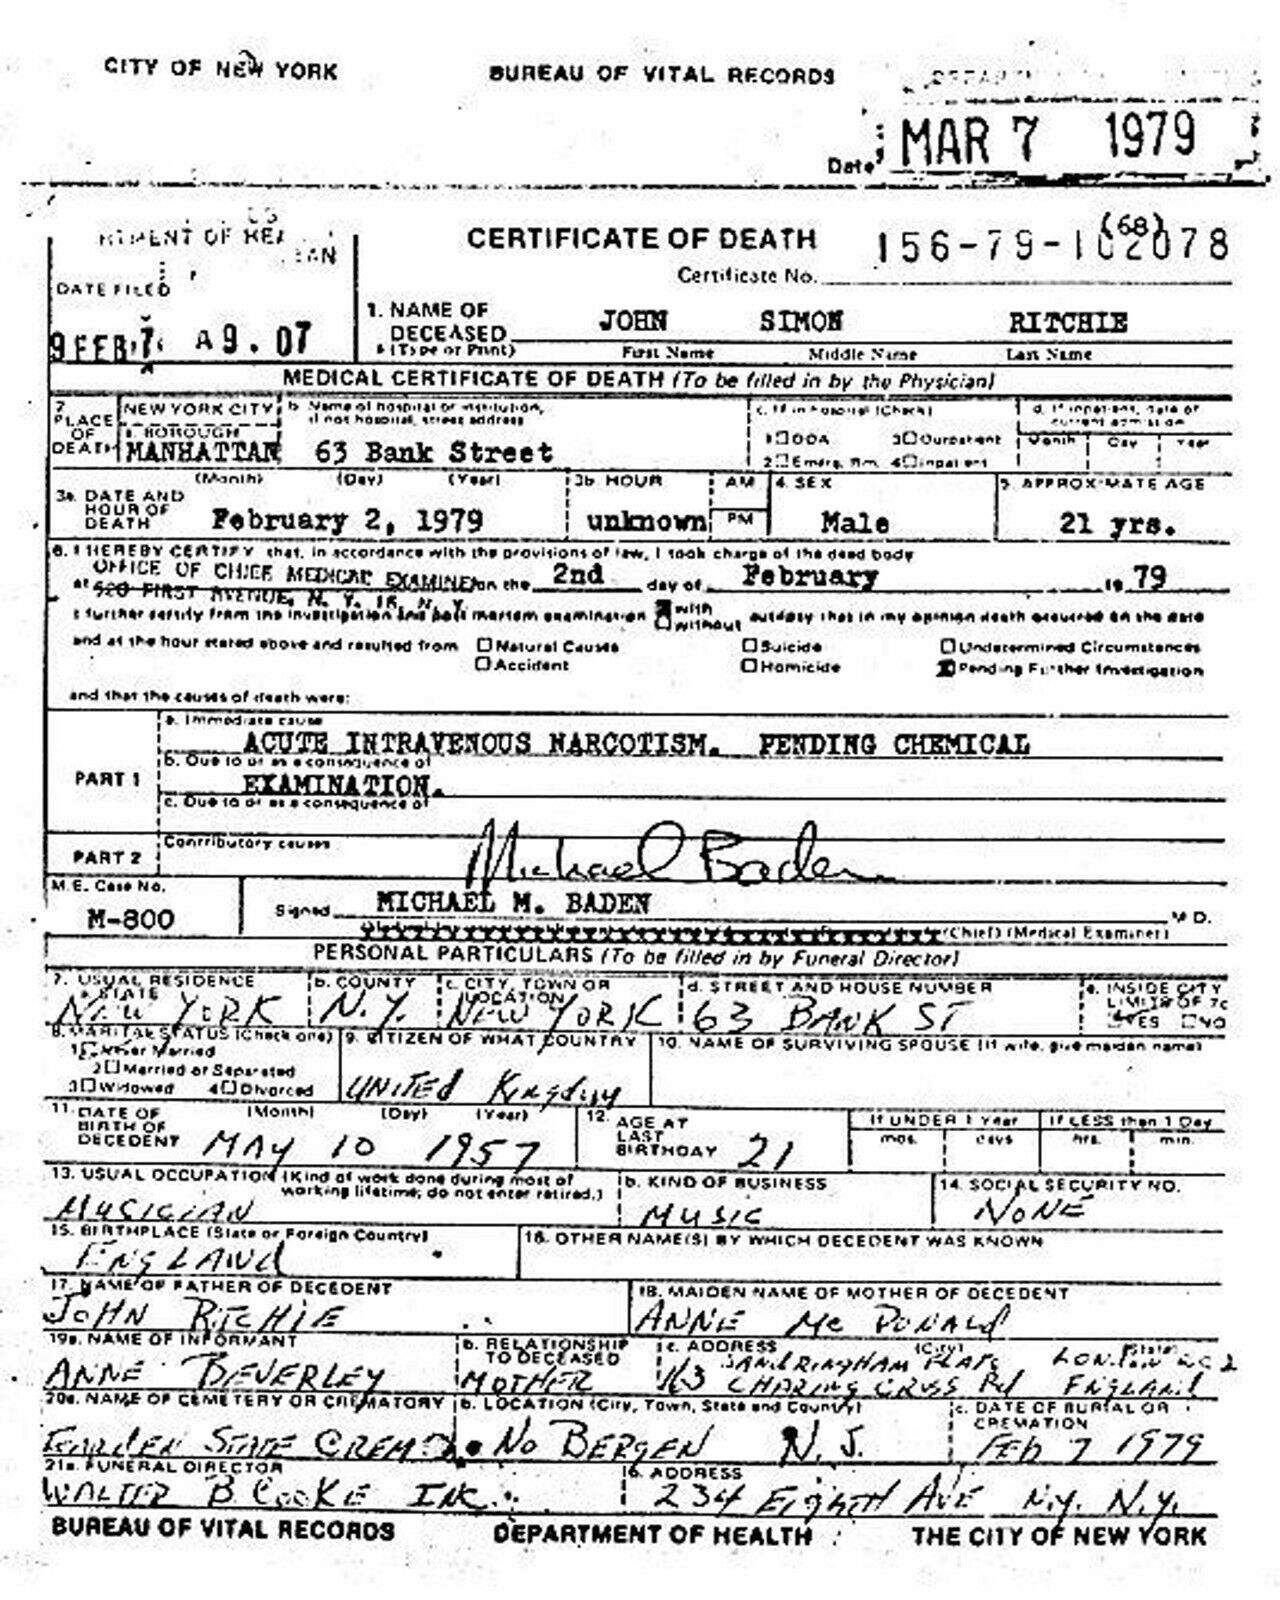 CITY OF NEW YORK
BUREAU OF VITAL RECORDS
Date MAR 7 1979
DATE FILED
9 FEB 7 A 9. 07
CERTIFICATE OF DEATH
156-79-102078
(68)
Certificate No.
1. NAME OF DECEASED (Type or Print)
JOHN SIMON RITCHIE
First Name Middle Name Last Name
MEDICAL CERTIFICATE OF DEATH (To be filled in by the Physician)
2. PLACE OF DEATH
NEW YORK CITY
a. BOROUGH
MANHATTAN
b. Name of hospital or institution,
if not hospital, street address
63 Bank Street
c. If in hospital (Check)
1 DOA 3 Outpatient
2 Emerg. Rm. 4 Inpatient
d. If inpatient, date of
current admission
Month Day Year
3a. DATE AND HOUR OF DEATH
(Month) (Day) (Year)
February 2, 1979
3b. HOUR
unknown
AM
PM
4. SEX
Male
5. APPROXIMATE AGE
21 yrs.
6. I HEREBY CERTIFY that, in accordance with the provisions of law, I took charge of the dead body
at OFFICE OF CHIEF MEDICAL EXAMINER on the 2nd day of February 19 79
520 FIRST AVENUE, N. Y. 16, N. Y.
I further certify from the investigation and post mortem examination with
without autopsy that in my opinion death occurred on the date
and at the hour stated above and resulted from Natural Causes Suicide Undetermined Circumstances
Accident Homicide Pending Further Investigation
and that the causes of death were:
PART 1
a. Immediate cause
ACUTE INTRAVENOUS NARCOTISM. PENDING CHEMICAL
b. Due to or as a consequence of
EXAMINATION.
c. Due to or as a consequence of
PART 2
Contributory causes
Michael Baden
M.E. Case No.
M-800
Signed MICHAEL M. BADEN M.D.
(Chief) (Medical Examiner)
PERSONAL PARTICULARS (To be filled in by Funeral Director)
7. USUAL RESIDENCE
a. STATE
NEW YORK
b. COUNTY
N.Y.
c. CITY, TOWN OR LOCATION
NEW YORK
d. STREET AND HOUSE NUMBER
63 BANK ST
e. INSIDE CITY
LIMITS OF 7c
YES NO
8. MARITAL STATUS (Check one)
1 Never Married
2 Married or Separated
3 Widowed 4 Divorced
9. CITIZEN OF WHAT COUNTRY
UNITED Kingdom
10. NAME OF SURVIVING SPOUSE (If wife, give maiden name)
11. DATE OF BIRTH OF DECEDENT
(Month) (Day) (Year)
MAY 10 1957
12. AGE AT LAST BIRTHDAY
21
If UNDER 1 Year
mos. days
If LESS than 1 Day
hrs. min.
13. USUAL OCCUPATION (Kind of work done during most of
working lifetime; do not enter retired.)
MUSICIAN
b. KIND OF BUSINESS
MUSIC
14. SOCIAL SECURITY NO.
NONE
15. BIRTHPLACE (State or Foreign Country)
ENGLAND
16. OTHER NAME(S) BY WHICH DECEDENT WAS KNOWN
17. NAME OF FATHER OF DECEDENT
JOHN RITCHIE
18. MAIDEN NAME OF MOTHER OF DECEDENT
ANNE Mc DONALD
19a. NAME OF INFORMANT
ANNE BEVERLEY
b. RELATIONSHIP TO DECEASED
MOTHER
c. ADDRESS (City) (State)
SANDRINGHAM FLATS LONDON WC2
163 CHARING CROSS Rd ENGLAND
20a. NAME OF CEMETERY OR CREMATORY
GARDEN STATE CREM
b. LOCATION (City, Town, State and County)
No BERGEN N.J.
c. DATE OF BURIAL OR CREMATION
FEB 7 1979
21a. FUNERAL DIRECTOR
WALTER B COOKE INC.
b. ADDRESS
234 EIGHTH AVE N.Y. N.Y.
BUREAU OF VITAL RECORDS DEPARTMENT OF HEALTH THE CITY OF NEW YORK